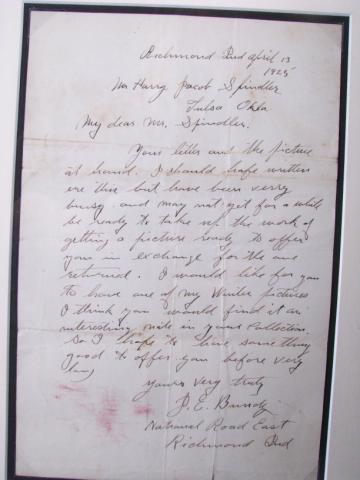 Richmond Ind april 13
1925
Mr Harry Jacob Spindler.
Tulsa Okla
My dear Mr. Spindler.
Your letter and the picture
at hand. I should hafe written
ere this but have been verry
bussy and may not yet for a while
be ready to take up the work of
getting a picture ready to offer
you in exchange for the one
returned. I would like for you
to have one of my Winter pictures
I think you would find it an
interesting note in your Collection.
So I hope to have something
good to offer you before very
long
Yours very truly
J. E. Bundy
National Road East
Richmond Ind